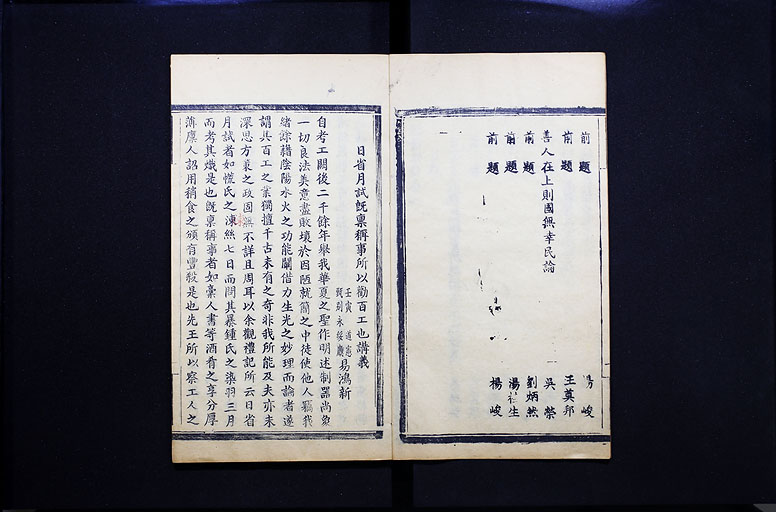 前題 易峻
前題 王蓂邦
善人在上則國無幸民論 吳棨
前題 劉炳然
前題 湯 生
前題 楊峻
日省月試既稟稱事所以勸百工也講義
壬寅 道憲
 刻永綏廳 易鴻新
自考工闕後二千餘年舉我華夏之聖作明述制器尚象
一切良法美意盡敗壞於因陋就簡之中徒使他人竊我
緒餘藉陰陽水火之功能闢借力生光之妙理而論者遂
謂其百工之業獨擅千古未有之奇非我所能及夫亦未
深思方策之政固無不詳且周耳以余觀禮記所云日省
月試者如㡛氏之湅絲七日而問其暴鍾氏之染羽三月
而考其熾是也既稟稱事者如槀人書等酒肴之享分厚
薄廩人詔用稍食之頒有豐殺是也先王所以察工人之